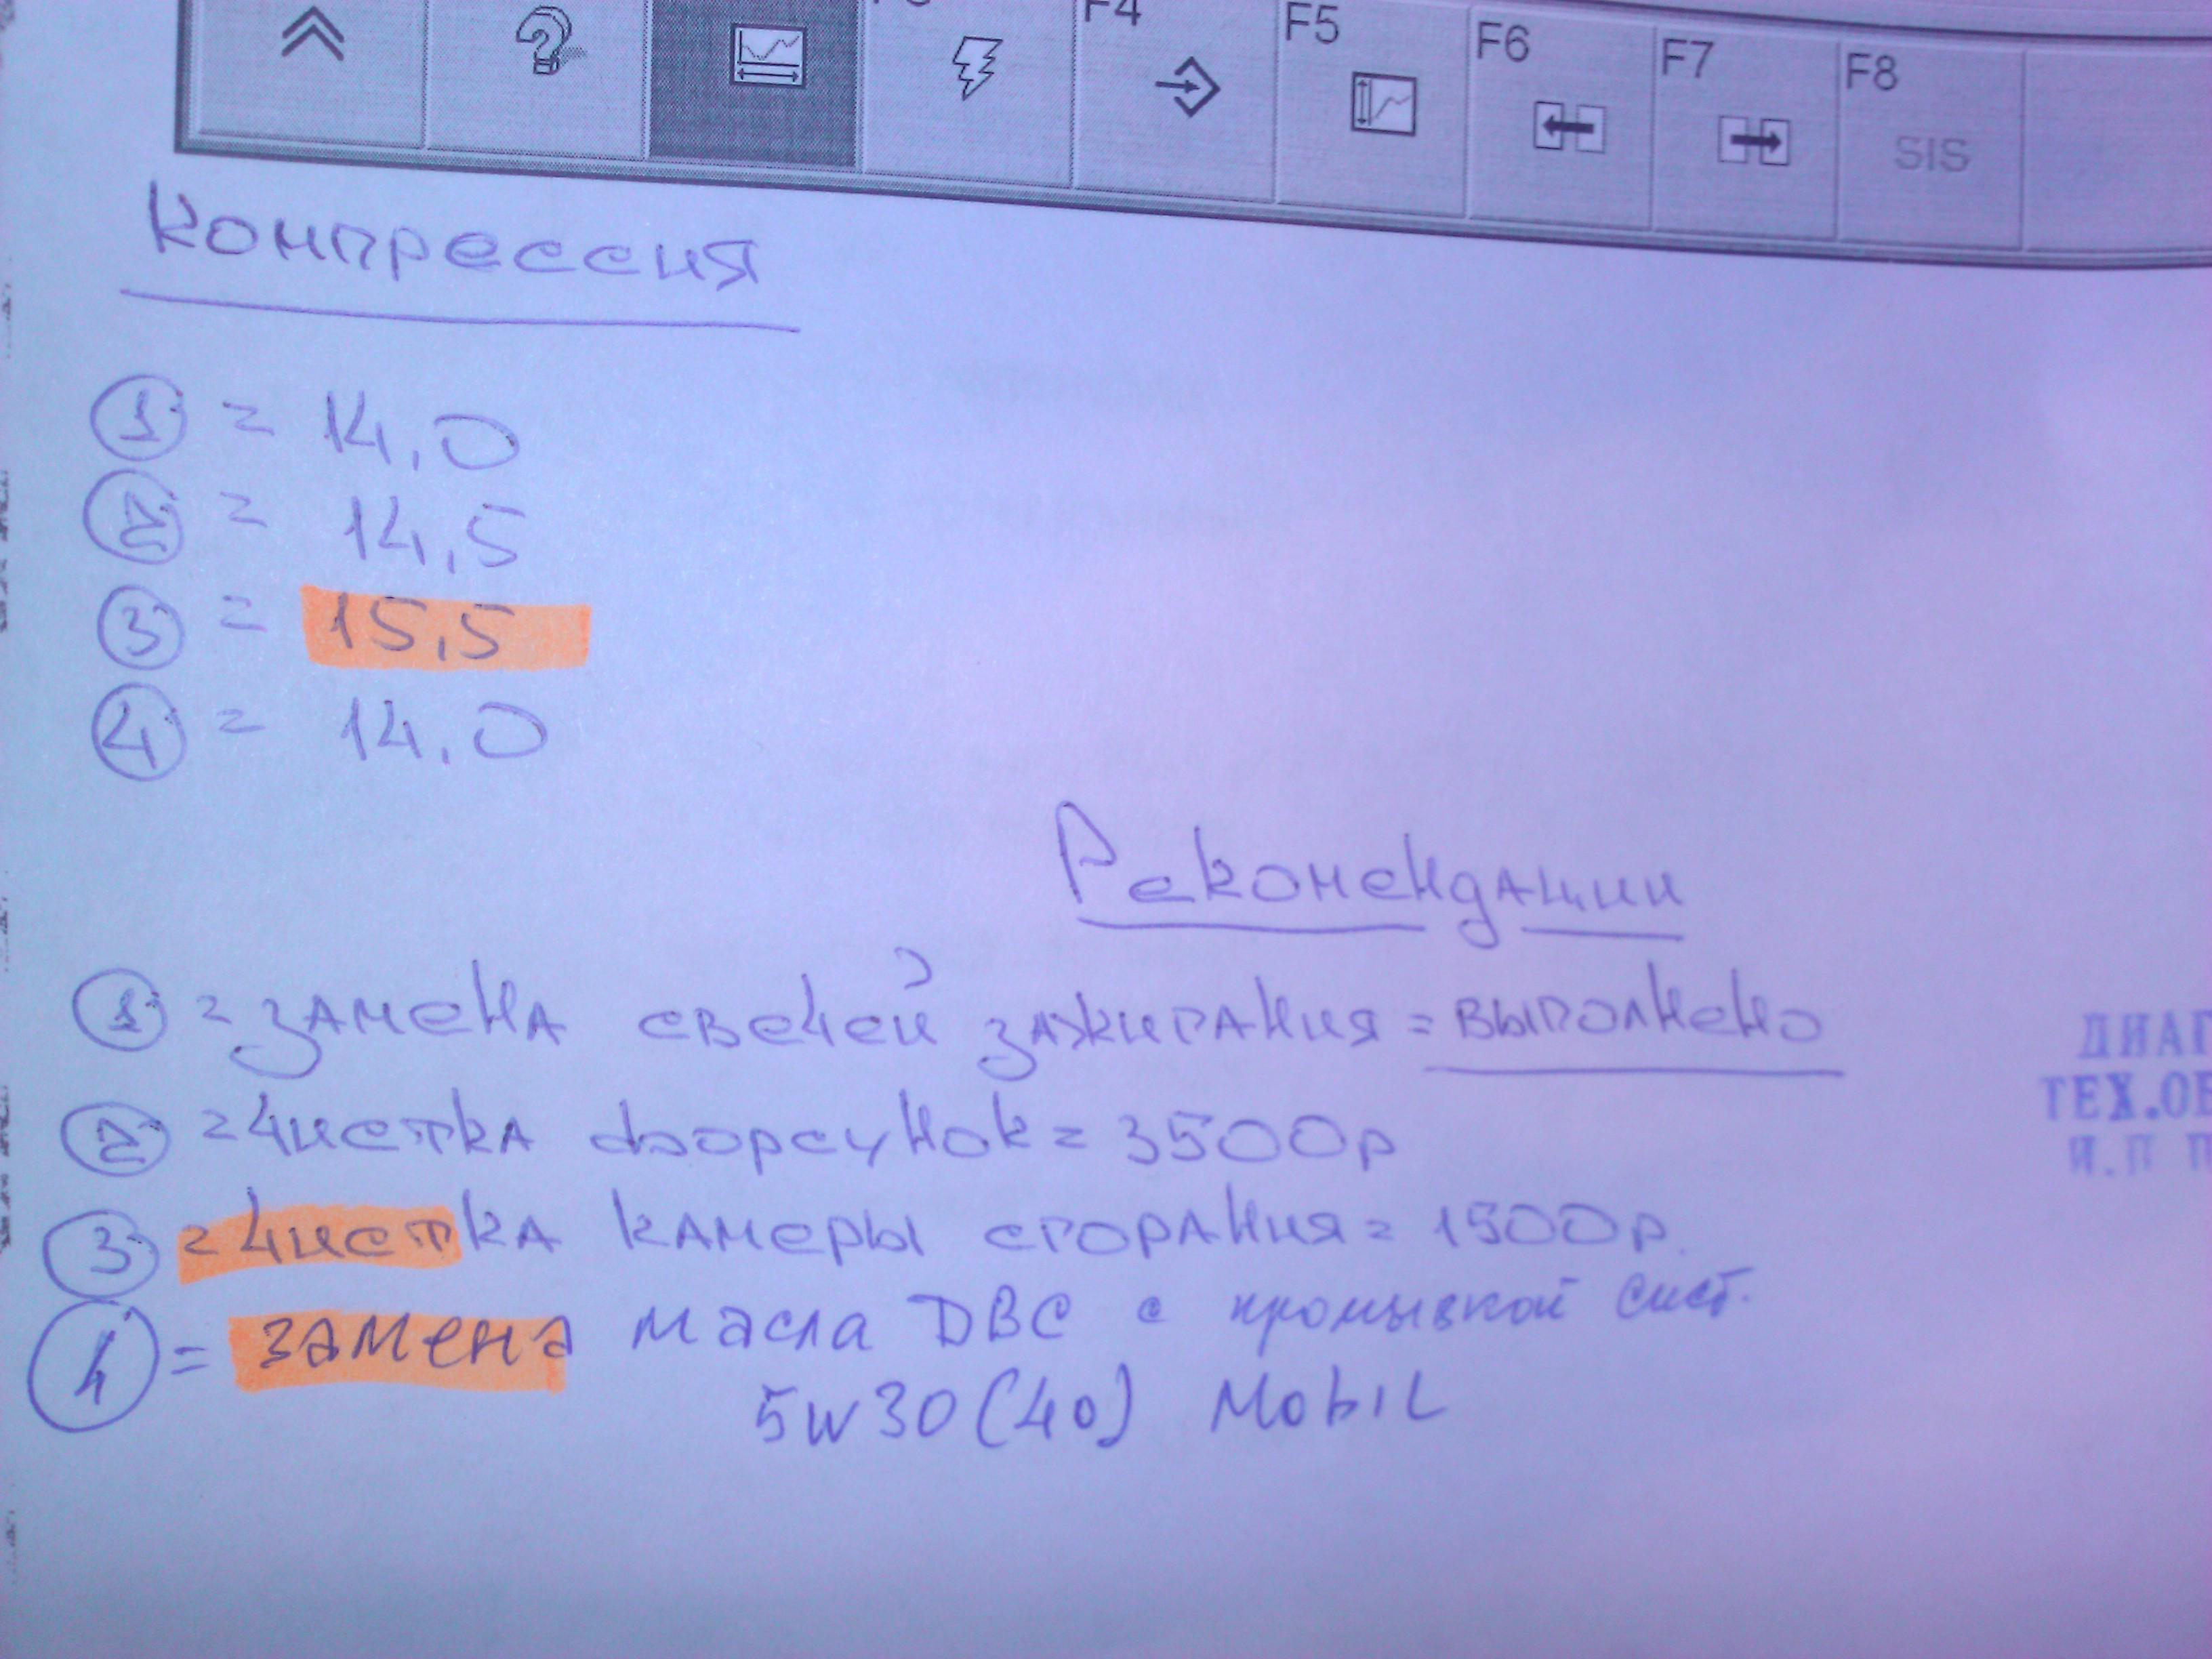 F4
F5
F6
F7
F8
SIS
Компрессия
1 = 14,0
2 = 14,5
3 = 15,5
4 = 14,0
Рекомендации
1 = замена свечей зажигания = выполнено
2 = чистка форсунок = 3500р
3 = чистка камеры сгорания = 1500р.
4 = замена масла ДВС с промывкой сист.
5W30(40) MobiL
ДИАГ
ТЕХ.ОБ
И.П П